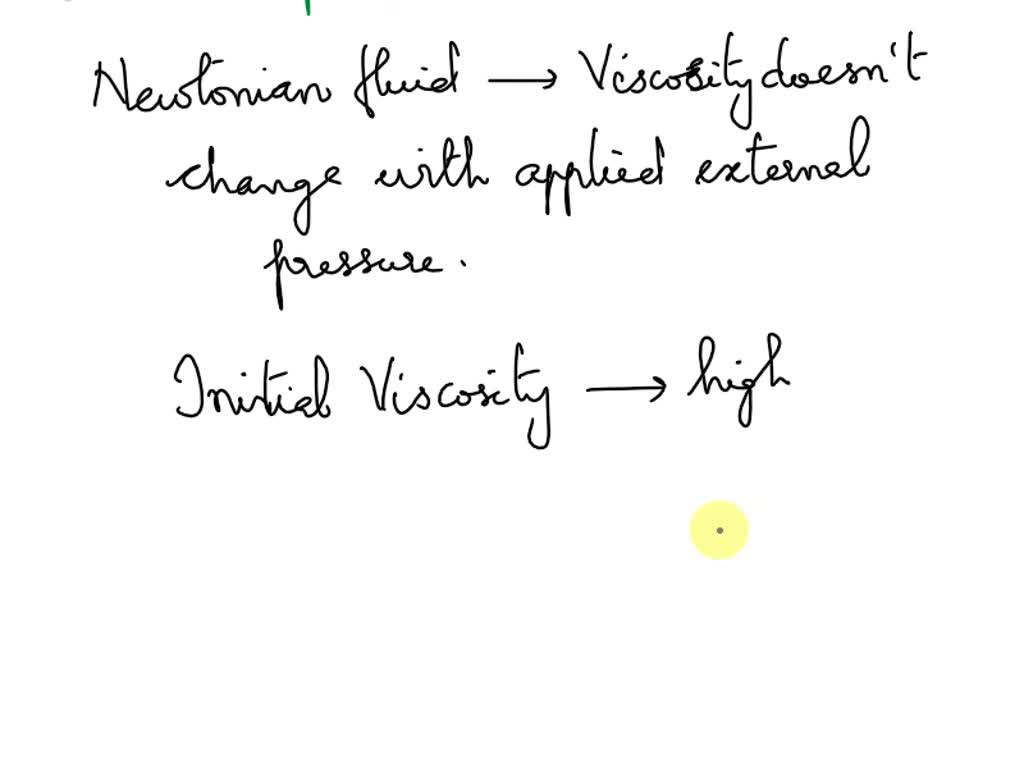 Newtonian fluid → Viscosity doesn't
change with applied external
pressure.
Initial Viscosity → high